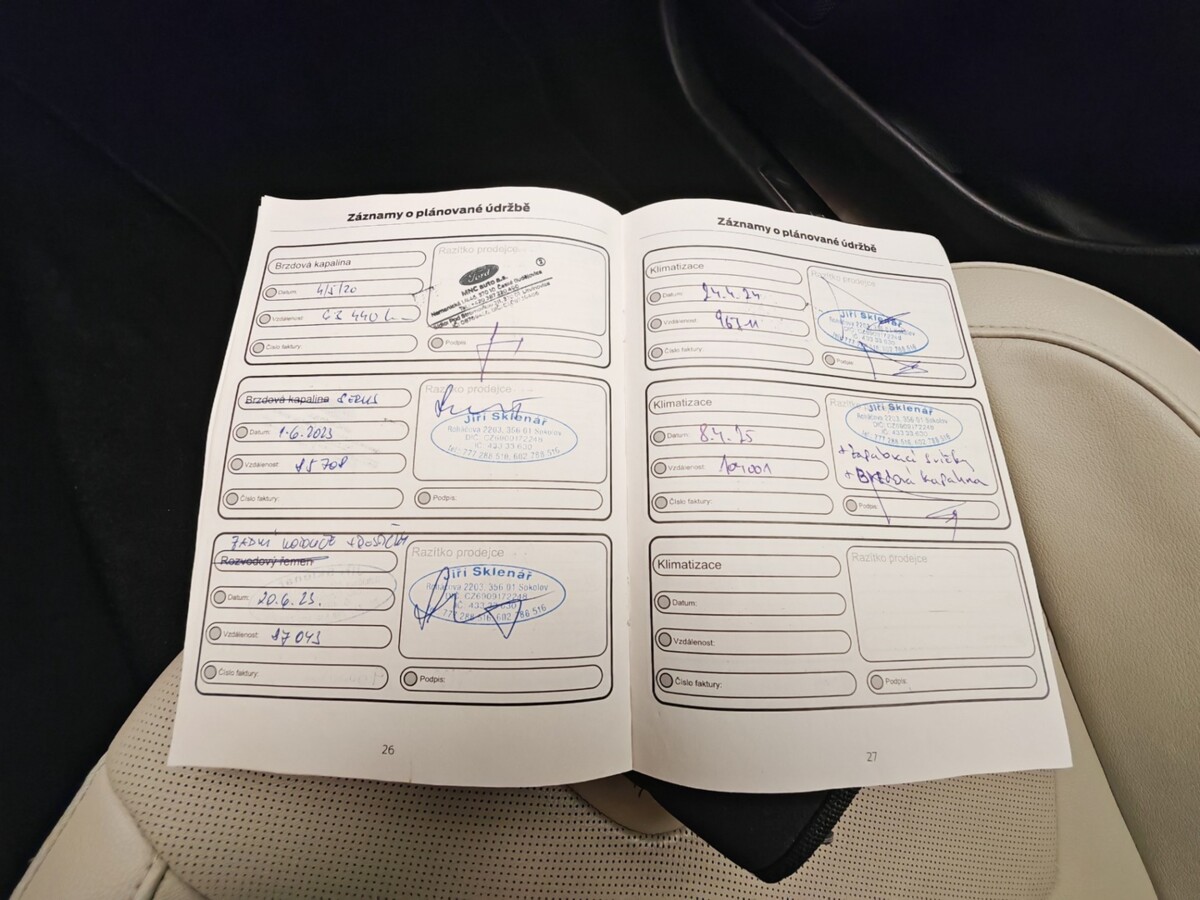 Záznamy o plánované údržbě
Brzdová kapalina
Datum: 4/5/20
Vzdálenost:
Číslo faktury:
Razítko prodejce
Ford
MNC auto s.r.o.
Podpis:
Brzdová kapalina SERVIS
Datum: 1.6.2023
Vzdálenost: 85708
Číslo faktury:
Razítko prodejce
Jiří Sklenář
Roháčova 2203, 356 01 Sokolov
DIČ: CZ6909172249
IČ: 433 33 630
tel.: 777 286 516, 602 786 516
Podpis:
ZADNÍ
Rozvodový řemen
Datum: 20.6.23.
Vzdálenost: 87045
Číslo faktury:
Razítko prodejce
Jiří Sklenář
Roháčova 2203, 356 01 Sokolov
CZ6909172249
IČ: 433 33 630
777 286 516, 602 786 516
Podpis:
26
Záznamy o plánované údržbě
Klimatizace
Datum: 24.4.24
Vzdálenost: 96311
Číslo faktury:
Razítko prodejce
Jiří Sklenář
Roháčova 2203, 356 01 Sokolov
DIČ: CZ6909172249
IČ: 433 33 630
777 286 516, 602 786 516
Podpis:
Klimatizace
Datum: 8.4.25
Vzdálenost: 104001
Číslo faktury:
Jiří Sklenář
Roháčova 2203, 356 01 Sokolov
DIČ: CZ6909172249
IČ: 433 33 630
777 286 516, 602 786 516
+ zapalovací svíčky
+ Brzdová kapalina
Podpis:
Klimatizace
Datum:
Vzdálenost:
Číslo faktury:
Razítko prodejce
Podpis:
27